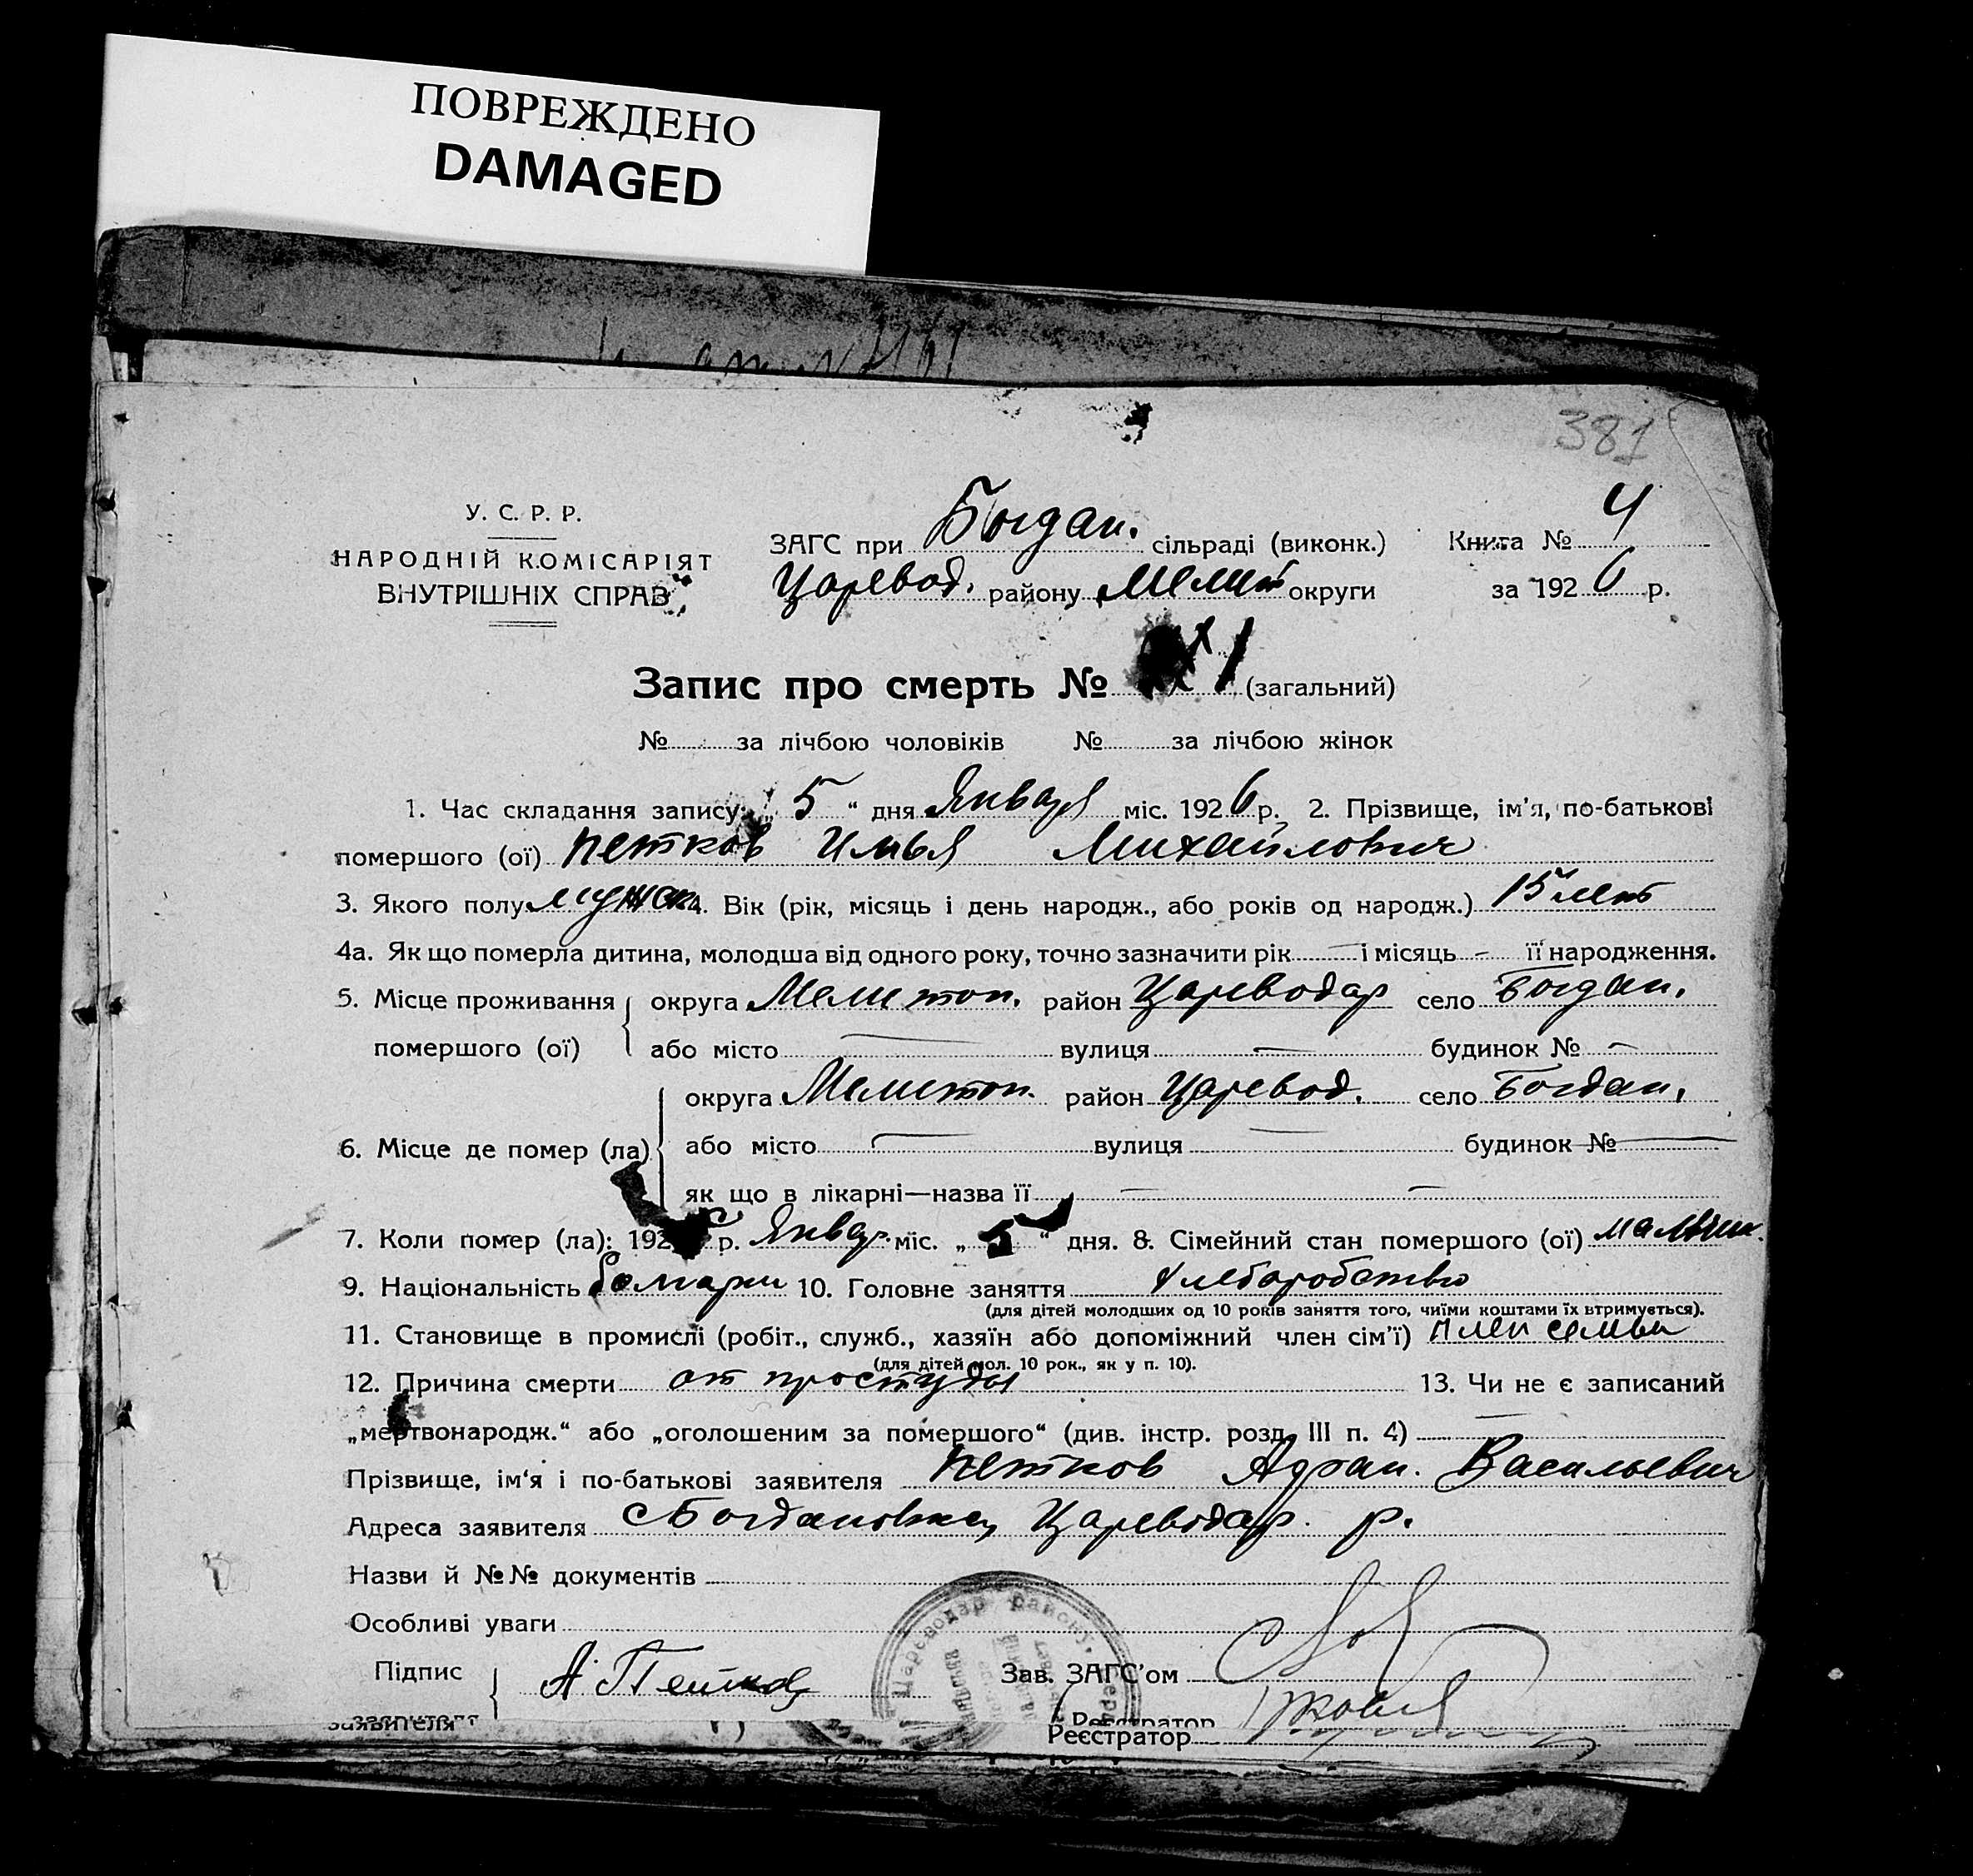 ПОВРЕЖДЕНО
DAMAGED
381
У. С. Р. Р.
НАРОДНІЙ КОМІСАРІЯТ
ВНУТРІШНІХ СПРАВ
ЗАГС при Богдан. сільраді (виконк.) Книга № 4
Царевод. району Мелит округи за 1926 р.
Запис про смерть № (загальний)
№ за лічбою чоловіків № за лічбою жінок
1. Час складання запису: „5“ дня Января міс. 1926 р. 2. Прізвище, ім'я, по-батькові
помершого (ої) Петков Илья Михайлович
3. Якого полу мужск 4. Вік (рік, місяць і день народж., або років од народж.) 15 лет
4а. Як що померла дитина, молодша від одного року, точно зазначити рік — і місяць — її народження.
5. Місце проживання округа Мелитоп. район Цареводар село Богдан.
помершого (ої) або місто — вулиця — будинок № —
округа Мелитоп. район Царевод. село Богдан.
6. Місце де помер (ла) або місто — вулиця — будинок № —
як що в лікарні—назва її — —
7. Коли помер (ла): 192 р. Январ. міс. „5“ дня. 8. Сімейний стан помершого (ої) мальчик.
9. Національність болгары 10. Головне заняття хлеборобство
(для дітей молодших од 10 років заняття того, чиїми коштами їх втримується).
11. Становище в промислі (робіт., служб., хазяїн або допоміжний член сім'ї) член семьи
(для дітей мол. 10 рок., як у п. 10).
12. Причина смерти от простуды 13. Чи не є записаний
„мертвонародж.“ або „оголошеним за помершого“ (див. інстр. розд. III п. 4) —
Прізвище, ім'я і по-батькові заявителя Петков Адран. Васильевич
Адреса заявителя с Богдановка, Цареводар. р.
Назви й №№ документів
Особливі уваги
Підпис А Петков Зав. ЗАГС'ом
заявителя
Реєстратор
Реєстратор
Цареводар району